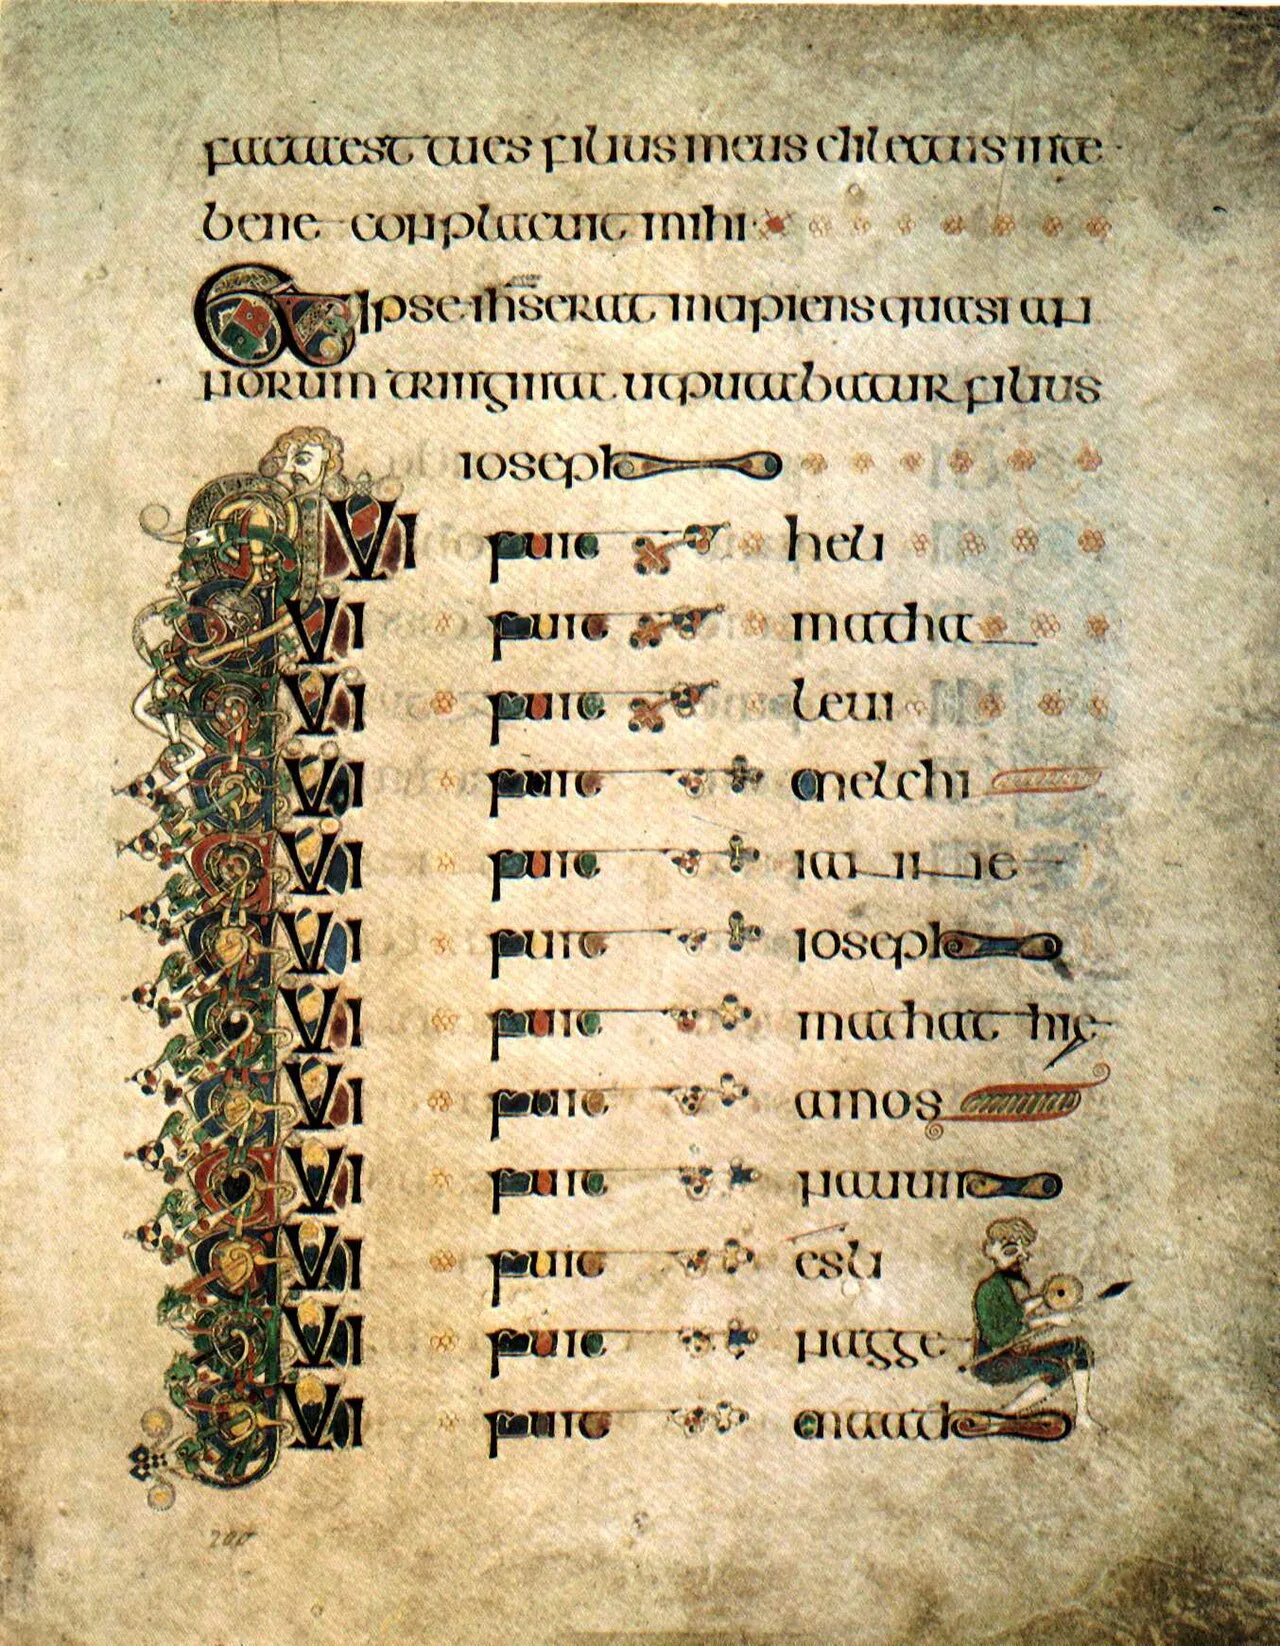 facta est tu es filius meus dilectus in te
bene conplacuit mihi
Et ipse ihs erat incipiens quasi an
norum triginta ut putabatur filius
ioseph
Qui fuit heli
Qui fuit matha
Qui fuit levi
Qui fuit melchi
Qui fuit iannae
Qui fuit ioseph
Qui fuit mathathie
Qui fuit amos
Qui fuit nauum
Qui fuit esli
Qui fuit nagge
Qui fuit maath
200